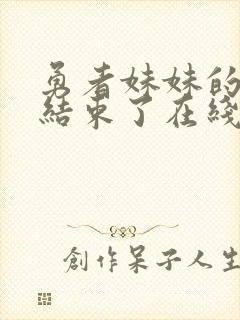 勇者妹妹的
結束了在綫
創作呆子人生